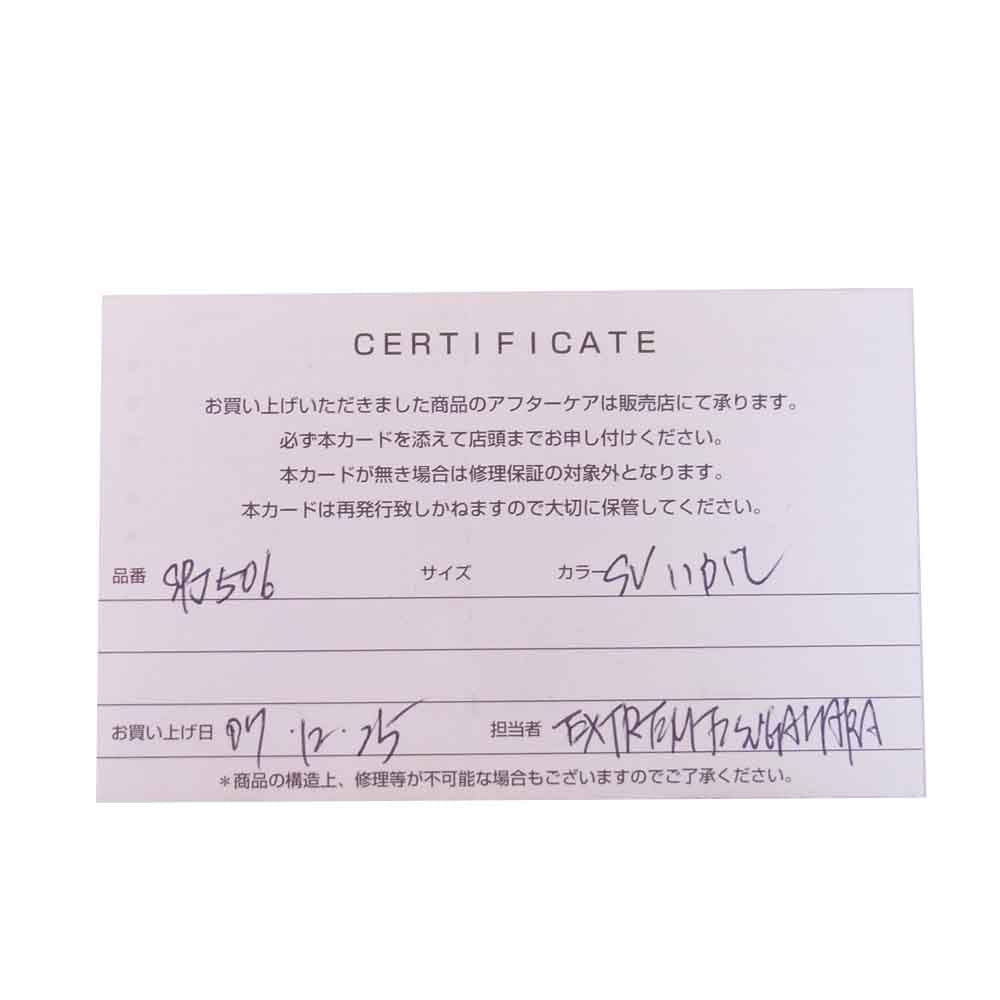 CERTIFICATE
お買い上げいただきました商品のアフターケアは販売店にて承ります。
必ず本カードを添えて店頭までお申し付けください。
本カードが無き場合は修理保証の対象外となります。
本カードは再発行致しかねますので大切に保管してください。
品番 SPJ506 サイズ カラー SV
お買い上げ日 07.12.25 担当者
*商品の構造上、修理等が不可能な場合もございますのでご了承ください。